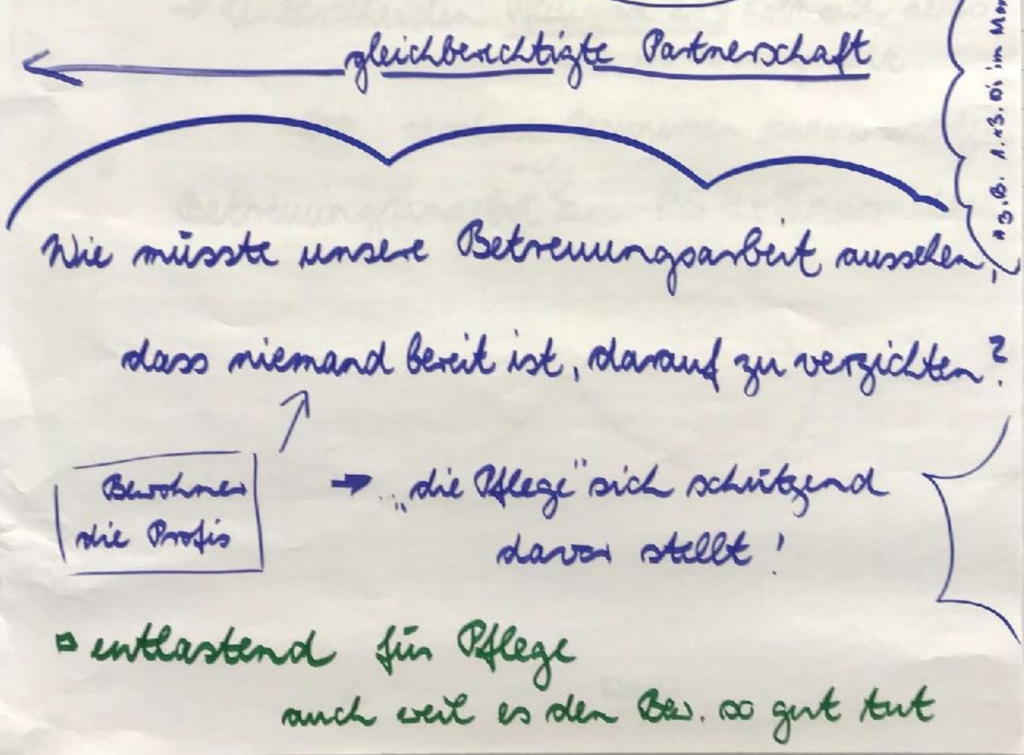 gleichberechtigte Partnerschaft
Wie müsste unsere Betreuungsarbeit aussehen,
dass niemand bereit ist, darauf zu verzichten?
Bewohner
die Profis
→ „die Pflege" sich schützend
davor stellt!
entlastend für Pflege
auch weil es den Bew. so gut tut
z.B. 1.+3. Di im Mon